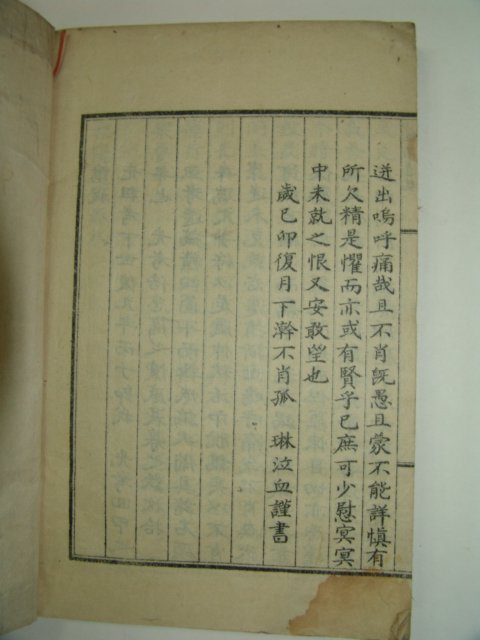 迸出嗚呼痛哉且不肖旣愚且蒙不能詳愼有
所欠精是懼而亦或有賢乎已庶可少慰冥冥
中未就之恨又安敢望也
歲己卯復月下澣不肖孤 琳泣血謹書